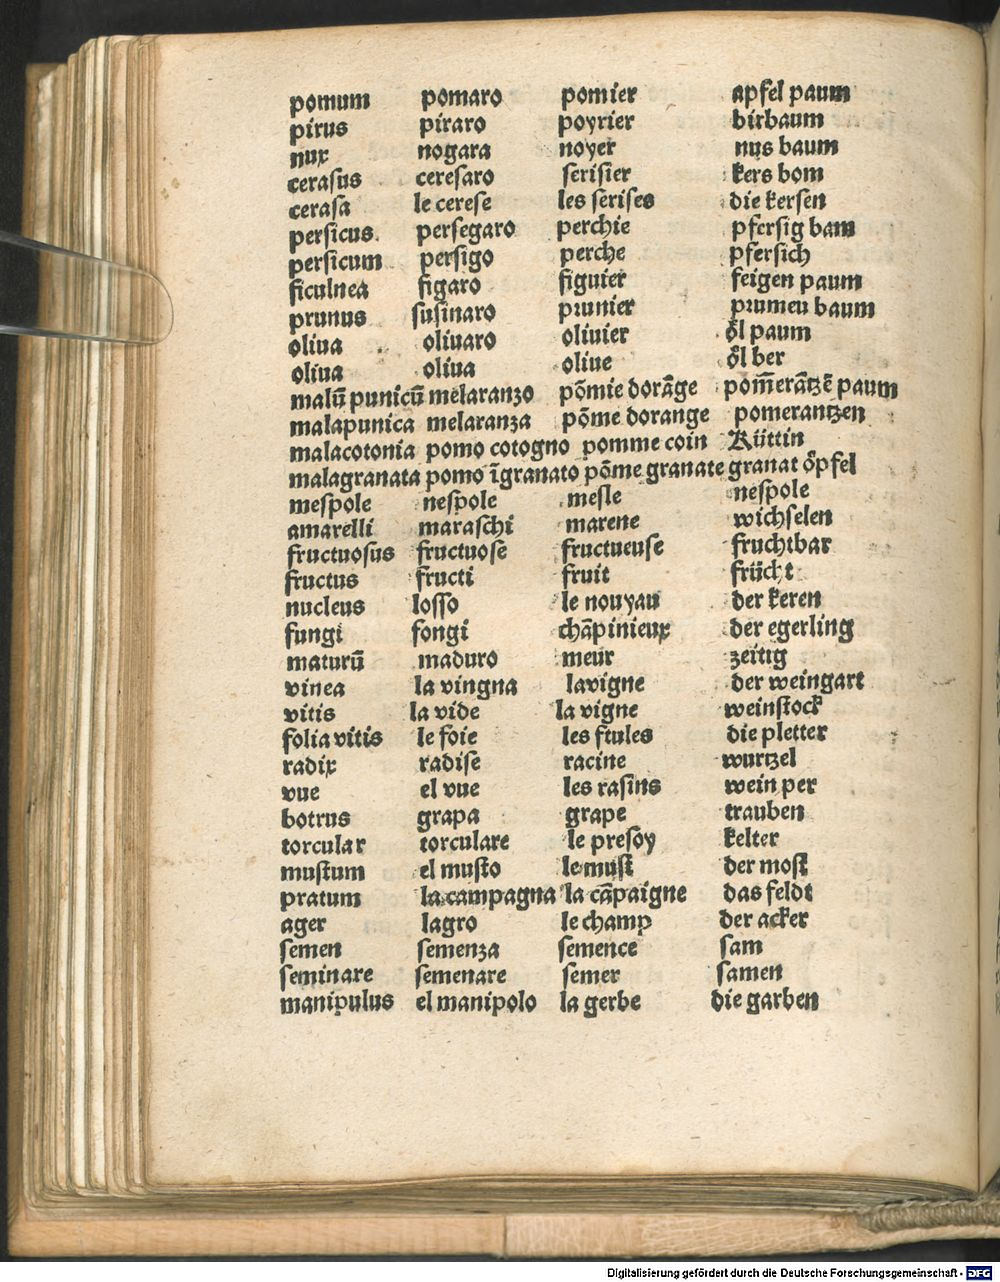 pomum pomaro pomier apfel paum
pirus piraro poyrier birbaum
nux nogara noyer nus baum
cerasus ceresaro serisier kers bom
cerasa le cerese les serises die kersen
persicus. persegaro perchie pfersig bam
persicum persigo perche pfersich
ficulnea figaro figuier feigen paum
prunus susinaro prunier prumeu baum
oliua oliuaro oliuier oͤl paum
oliua oliua oliue oͤl ber
malū punicū melaranzo pōmie dorāge pom̄erātzē paum
malapunica melaranza pōme dorange pomerantzen
malacotonia pomo cotogno pomme coin Küttin
malagranata pomo īgranato pōme granate granat oͤpfel
mespole nespole mesle nespole
amarelli maraschi marene wichselen
fructuosus fructuose fructueuse fruchtbar
fructus fructi fruit frücht
nucleus losso le nouyau der keren
fungi fongi chāpinieux der egerling
maturū maduro meur zeitig
vinea la vingna lavigne der weingart
vitis la vide la vigne weinstock
folia vitis le foie les ftules die pletter
radix radise racine wurtzel
vue el vue les rasins wein per
botrus grapa grape trauben
torcular torculare le presoy kelter
mustum el musto le must der most
pratum la campagna la cāpaigne das feldt
ager lagro le champ der acker
semen semenza semence sam
seminare semenare semer samen
manipulus el manipolo la gerbe die garben
Digitalisierung gefördert durch die Deutsche Forschungsgemeinschaft - DFG